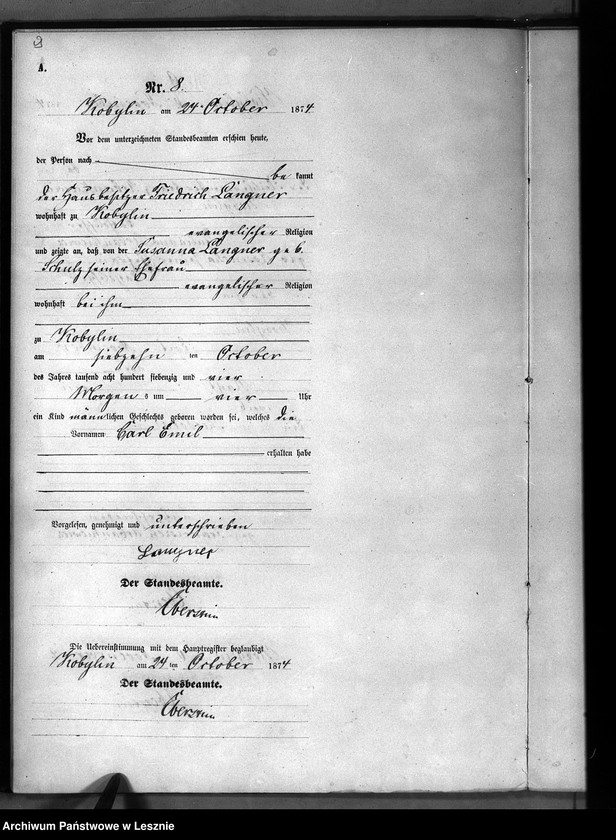 2
A.
Nr. 8.
Kobylin am 24 October 1874
Vor dem unterzeichneten Standesbeamten erschien heute,
der Person nach
be kannt
der Hausbesitzer Friedrich Langner
wohnhaft zu Kobylin
evangelischer Religion
und zeigte an, daß von der Susanna Langner geb.
Schulz seiner Ehefrau
evangelischer Religion
wohnhaft bei ihm
zu Kobylin
am siebzehn ten October
des Jahres tausend acht hundert siebenzig und vier
Morgen s um vier Uhr
ein Kind männlichen Geschlechts geboren worden sei, welches die
Vornamen Carl Emil
erhalten habe
Vorgelesen, genehmigt und unterschrieben
Langner
Der Standesbeamte.
Die Uebereinstimmung mit dem Hauptregister beglaubigt
Kobylin am 24 ten October 1874
Der Standesbeamte.
Archiwum Państwowe w Lesznie